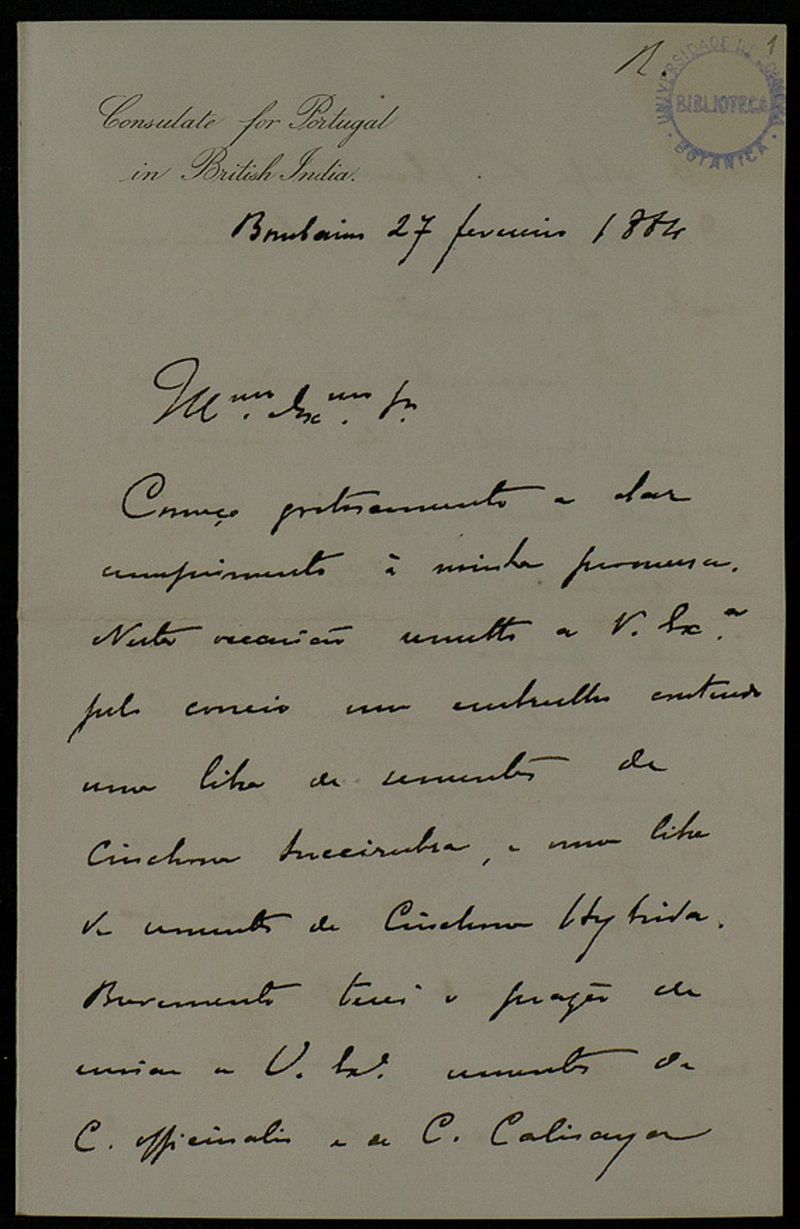 R.
1
UNIVERSIDADE DE
BIBLIOTECA
BOTANICA
Consulate for Portugal
in British India.
Bombaim 27 fevereiro 1884
Ill.mo Ex.mo Sr.
Começo gostosamente a dar
cumprimento à minha promessa.
Nesta occasião remetto a V. Ex.a
pelo correio um embrulho contendo
uma libra de sementes de
Cinchona succirubra, e uma libra
de sementes de Cinchona Hybrida.
Brevemente terei o prazer de
enviar a V. Exa. sementes de
C. officinalis e de C. Calisaya